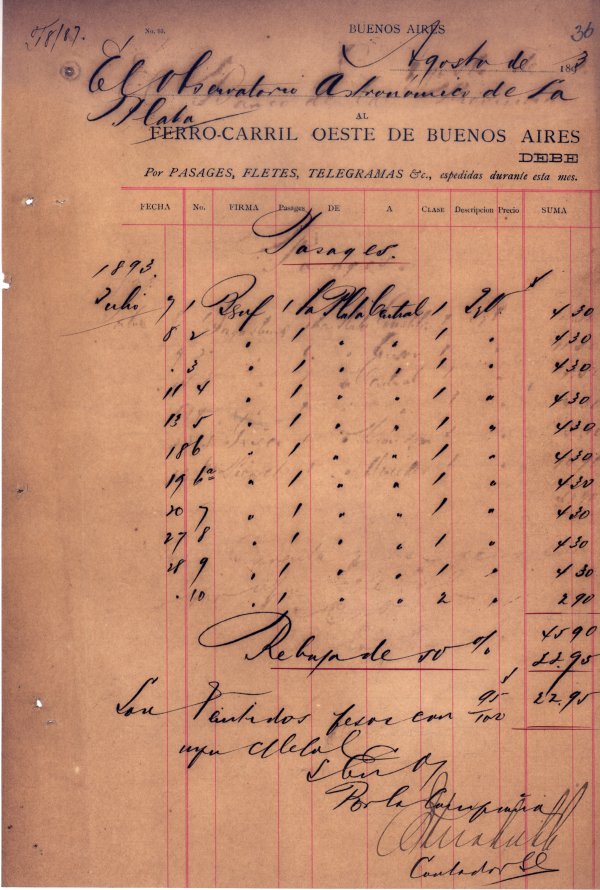 T8/87.
No. 55.
BUENOS AIRES
36
Agosto de 1893
El Observatorio Astronómico de La
Plata
AL
FERRO-CARRIL OESTE DE BUENOS AIRES
DEBE
Por PASAGES, FLETES, TELEGRAMAS &c., espedidas durante esta mes.
FECHA No. FIRMA Pasages DE A CLASE Descripcion Precio SUMA
Pasages.
1893.
Julio 7 1 1 La Plata Central 1 $ 4 30
8 2 " 1 " " 1 " 4 30
" 3 " 1 " " 1 " 4 30
11 4 " 1 " " 1 " 4 30
13 5 " 1 " " 1 " 4 30
18 6 " 1 " " 1 " 4 30
19 6a " 1 " " 1 " 4 30
20 7 " 1 " " 1 " 4 30
27 8 " 1 " " 1 " 4 30
28 9 " 1 " " 1 " 4 30
" 10 " 1 " " 2 " 2 90
45 90
Rebaja de 50 % 22.95
Son Veintidos pesos con 95/100 $ 22.95
m/n
S E u O
Por la Compañia
Contador